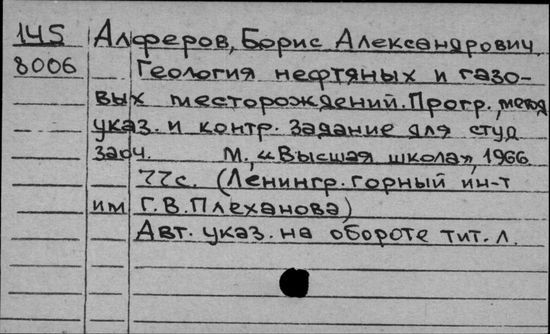 145 Алферов, Борис Александрович.
8006 Геология нефтяных и газо-
вых месторождений. Прогр., метод
указ. и контр. задание для студ
заоч. М., «Высшая школа», 1966.
77с. (Ленингр. горный ин-т
им Г.В. Плеханова)
Авт. указ. на обороте тит. л.